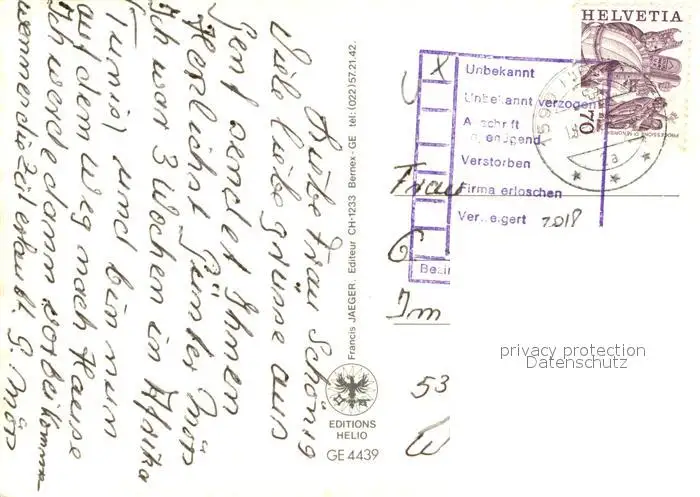 Liebe Frau Schönig
Viele liebe Grüsse aus
Genf sendet Ihnen
Herzlichst Günter Möp
Ich war 3 Wochen in Afrika
(Tunis) und bin nun
auf dem Weg nach Hause
Ich werde dann vorbeikommen
wenn er die Zeit erlaubt. G. Möp
Francis JAEGER. Editeur CH-1233 Bernex-GE tél: (022) 57.21.42.
EDITIONS
HELIO
GE 4439
HELVETIA
70
X Unbekannt
Unbekannt verzogen
Verstorben
Firma erloschen
2018
Frau
Im
53
privacy protection
Datenschutz